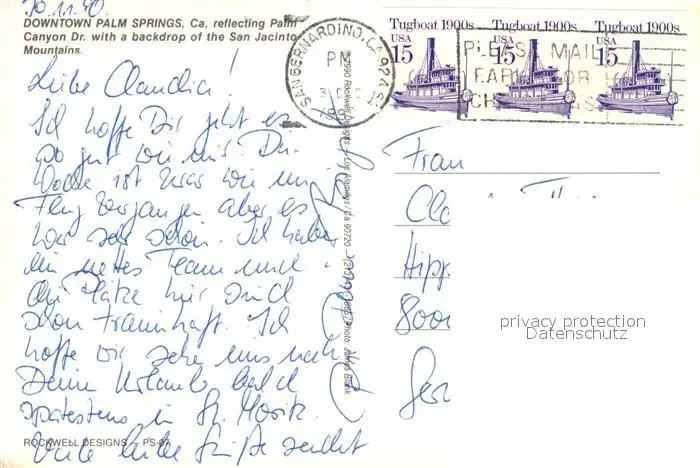 30.11.90
DOWNTOWN PALM SPRINGS, Ca, reflecting Palm
Canyon Dr. with a backdrop of the San Jacinto
Mountains.
Liebe Claudia!
Ich hoffe Dir geht es
so gut wie mir. Die
Woche ist zwar wie im
Flug vergangen aber es
war sehr schön. Ich habe
ein nettes Team und
die Plätze hier sind
schon traumhaft. Ich
hoffe wir sehen uns nach
Deinem Urlaub bald
spätestens in St. Moritz.
Viele liebe Grüße sendet
ROCKWELL DESIGNS - PS-07
1990 Rockwell Designs - Los Alamitos, Ca 90720
Photo James Blank
SAN BERNARDINO, CA 924
PM
PLEASE MAIL
EARLY FOR
CHRISTMAS
Tugboat 1900s
USA
15
Tugboat 1900s
USA
15
Tugboat 1900s
USA
15
Frau
Cla
Hipp
800
Ger
privacy protection
Datenschutz